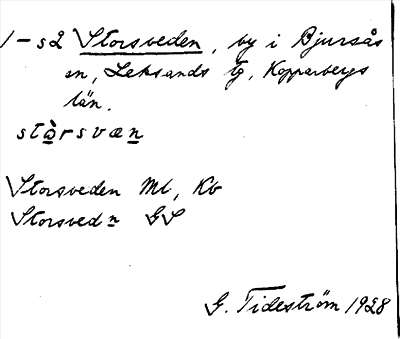 1-s2 Storsveden, by i Bjursås
sn, Leksands tg, Kopparbergs
län.
stårsvæn
Storsveden Ml, Kb
Storsvedn GS
G. Tideström 1928